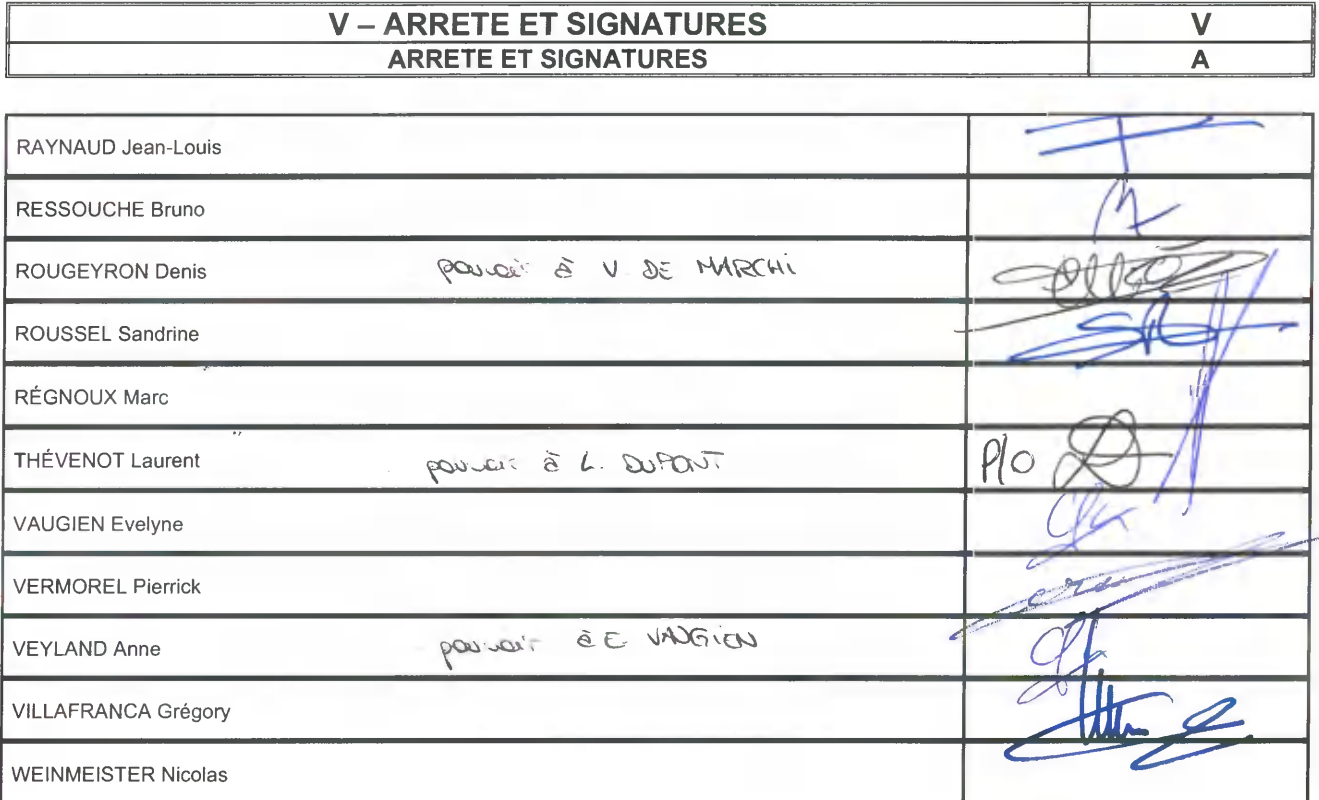 V – ARRETE ET SIGNATURES V
ARRETE ET SIGNATURES A
RAYNAUD Jean-Louis
RESSOUCHE Bruno
ROUGEYRON Denis pouvoir à V DE MARCHI
ROUSSEL Sandrine
RÉGNOUX Marc
THÉVENOT Laurent pouvoir à L. DUPONT P/O
VAUGIEN Evelyne
VERMOREL Pierrick
VEYLAND Anne pouvoir à E VAUGIEN
VILLAFRANCA Grégory
WEINMEISTER Nicolas